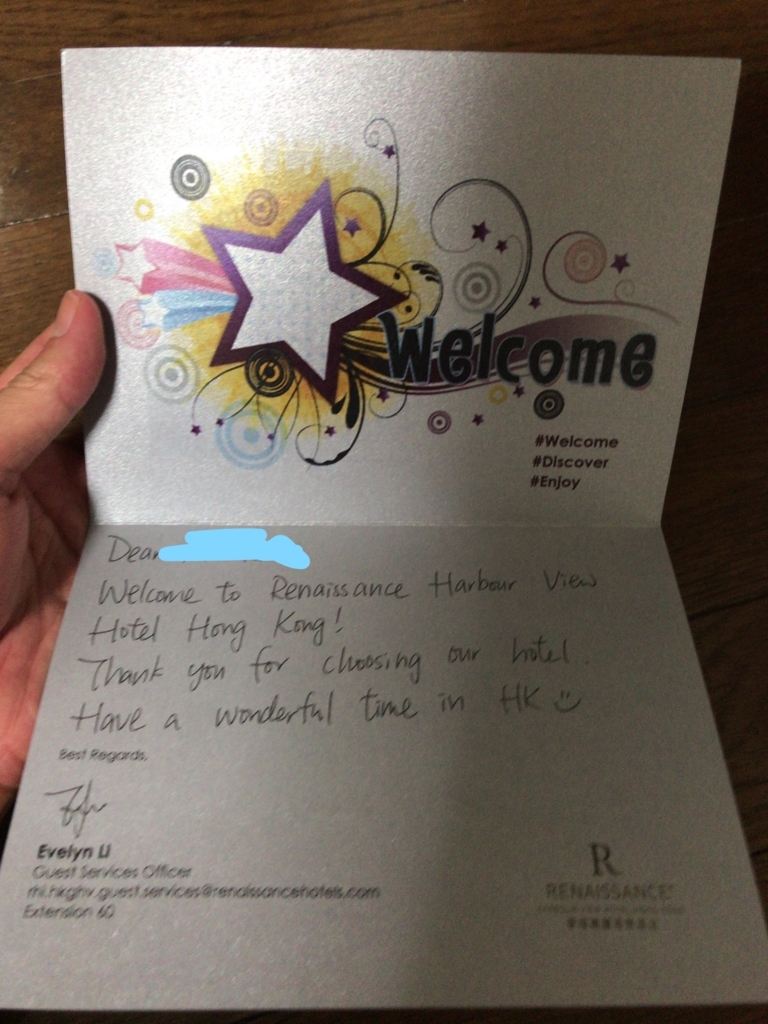 Welcome
#Welcome
#Discover
#Enjoy
Dear
Welcome to Renaissance Harbour View
Hotel Hong Kong!
Thank you for choosing our hotel.
Have a wonderful time in HK
Best Regards,
Evelyn Li
Guest Services Officer
rhi.hkghv.guest.services@renaissancehotels.com
Extension 60
R
RENAISSANCE®